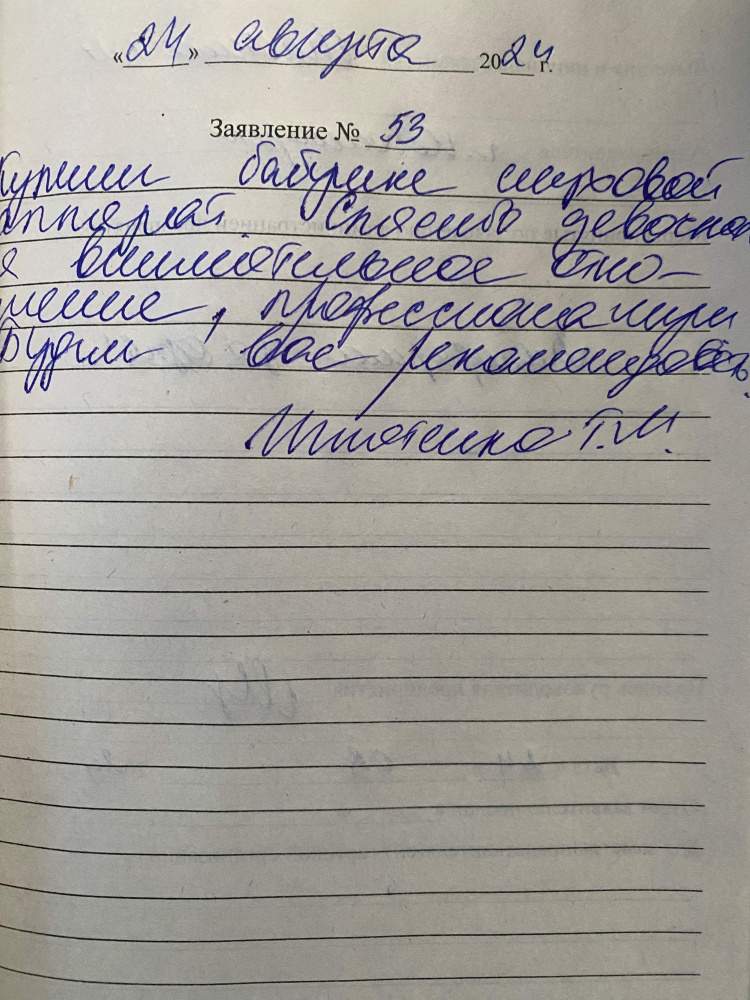 «24» августа 2024 г.
Заявление № 53
Купили бабушке слуховой
аппарат. Спасибо девочкам
за внимательное отно-
шение, профессионализм
Будем вас рекомендовать.
Т.М.